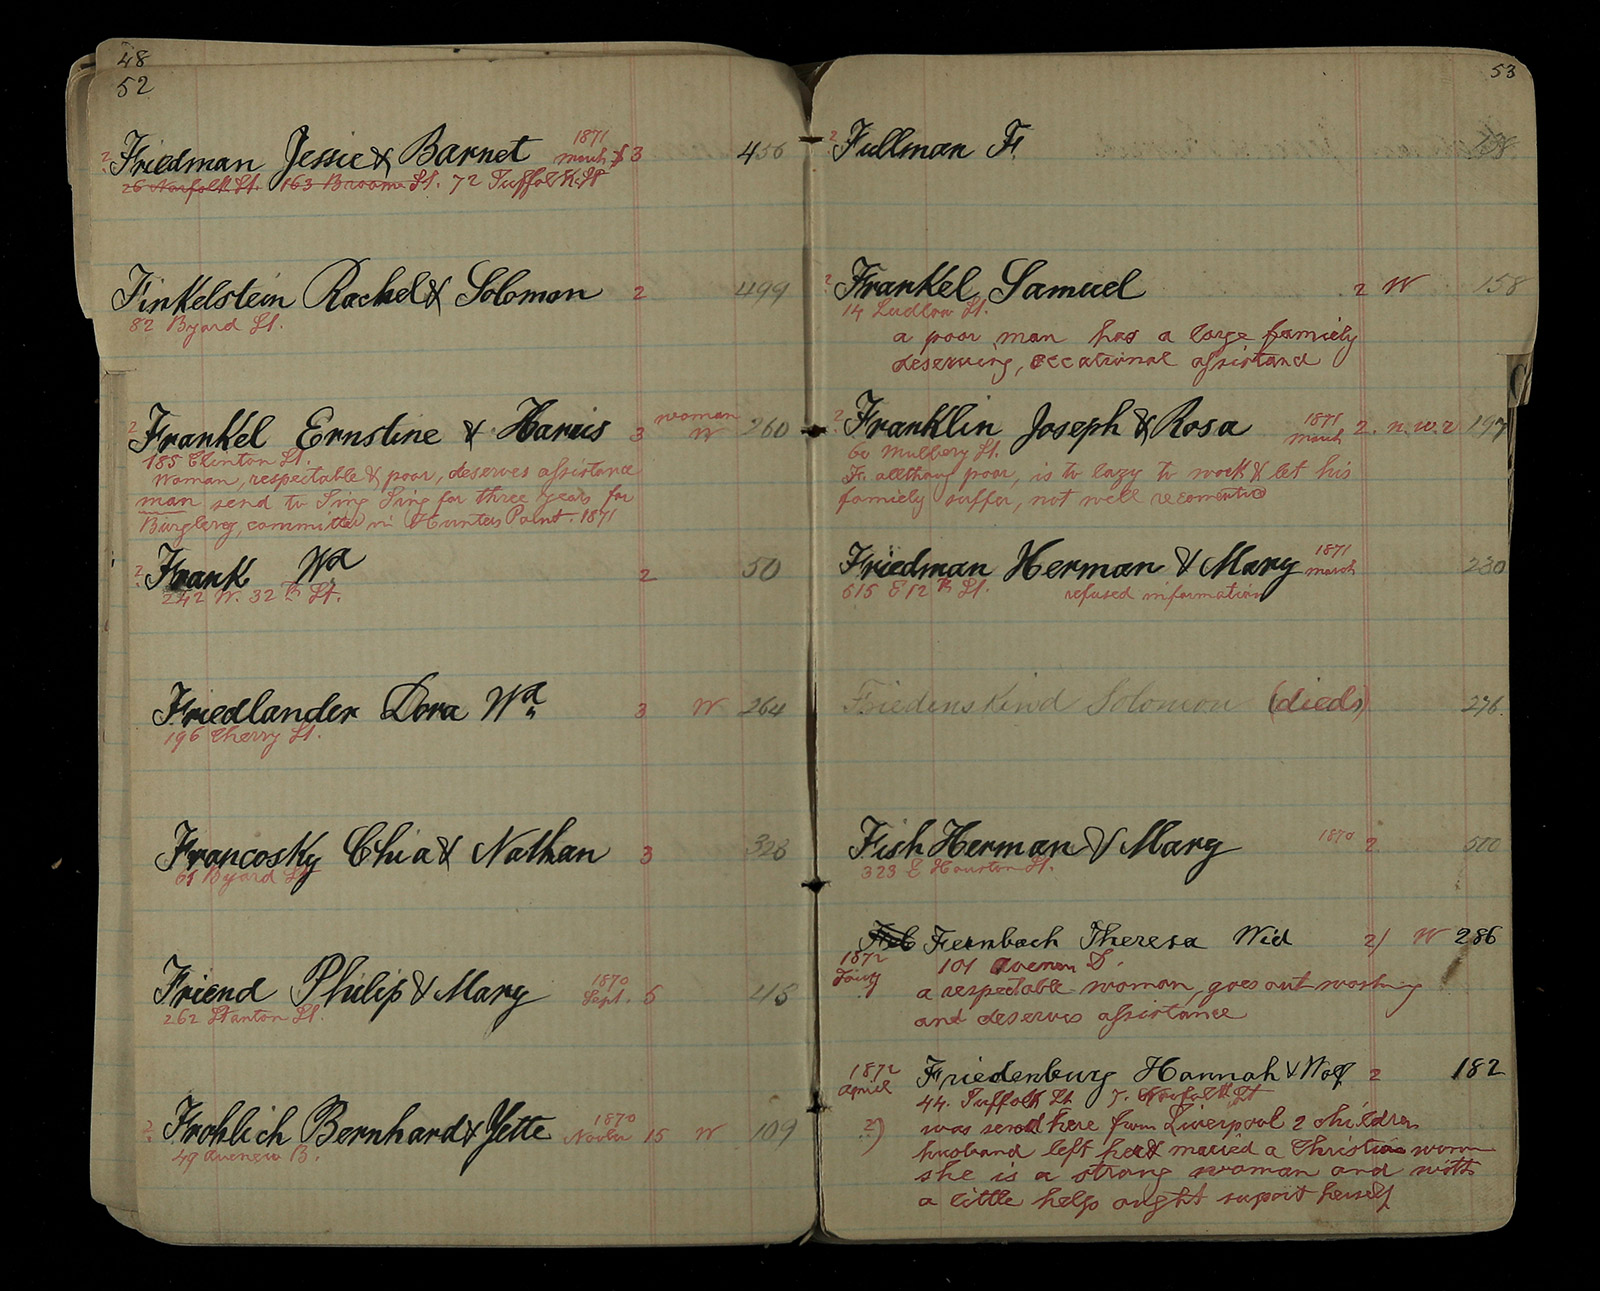 48
52
2 Friedman Jessie & Barnet 1871 March 3 456
26 Norfolk St. 163 Broome St. 72 Suffolk St
Finkelstein Rachel & Solomon 2 499
82 Byard St.
2 Frankel Ernstine & Harris 3 woman W 260
185 Clinton St.
Woman, respectable & poor, deserves assistance
man send to Sing Sing for three years for
Burglery, committed in Hunters Point. 1871
2 Frank Wd 2 50
242 W. 32 St.
Friedlander Dora Wd 3 W 264
196 Cherry St.
Francosky Chia & Nathan 3 328
61 Byard St
Friend Philip & Mary 1870 Sept. 5 415
262 Stanton St.
2 Frohlich Bernhard & Yette 1870 Novber 15 W 109
49 Avenew B.
53
2 Fullman F. 138
2 Frankel Samuel 2 W 158
14 Ludlow St.
a poor man has a large famiely
deserving, occational assistand
2 Franklin Joseph & Rosa 1871 March 2. n.w.r 197
60 Mulbery St.
F. allthoug poor, is to lazy to work & let his
famiely suffer, not well recomented
Friedman Herman & Mary 1871 March 230
615 E 12 th St. refused information
Friedenskind Solomon (died) 276.
Fish Herman & Mary 1870 2 500
323 E Houston St.
Fernbach Theresa Wid 2) W 286
1872
101 Avenew D.
a respectable woman, goes out washing
and deserves assistance
1872 Friedenburg Hannah & Wolf 2 182
Apriel
44. Suffolk St 7. Norfolk St
2) was send here from Liverpool 2 children
husband left her & maried a Christian woman
she is a strong woman and with
a little help ought suport herself